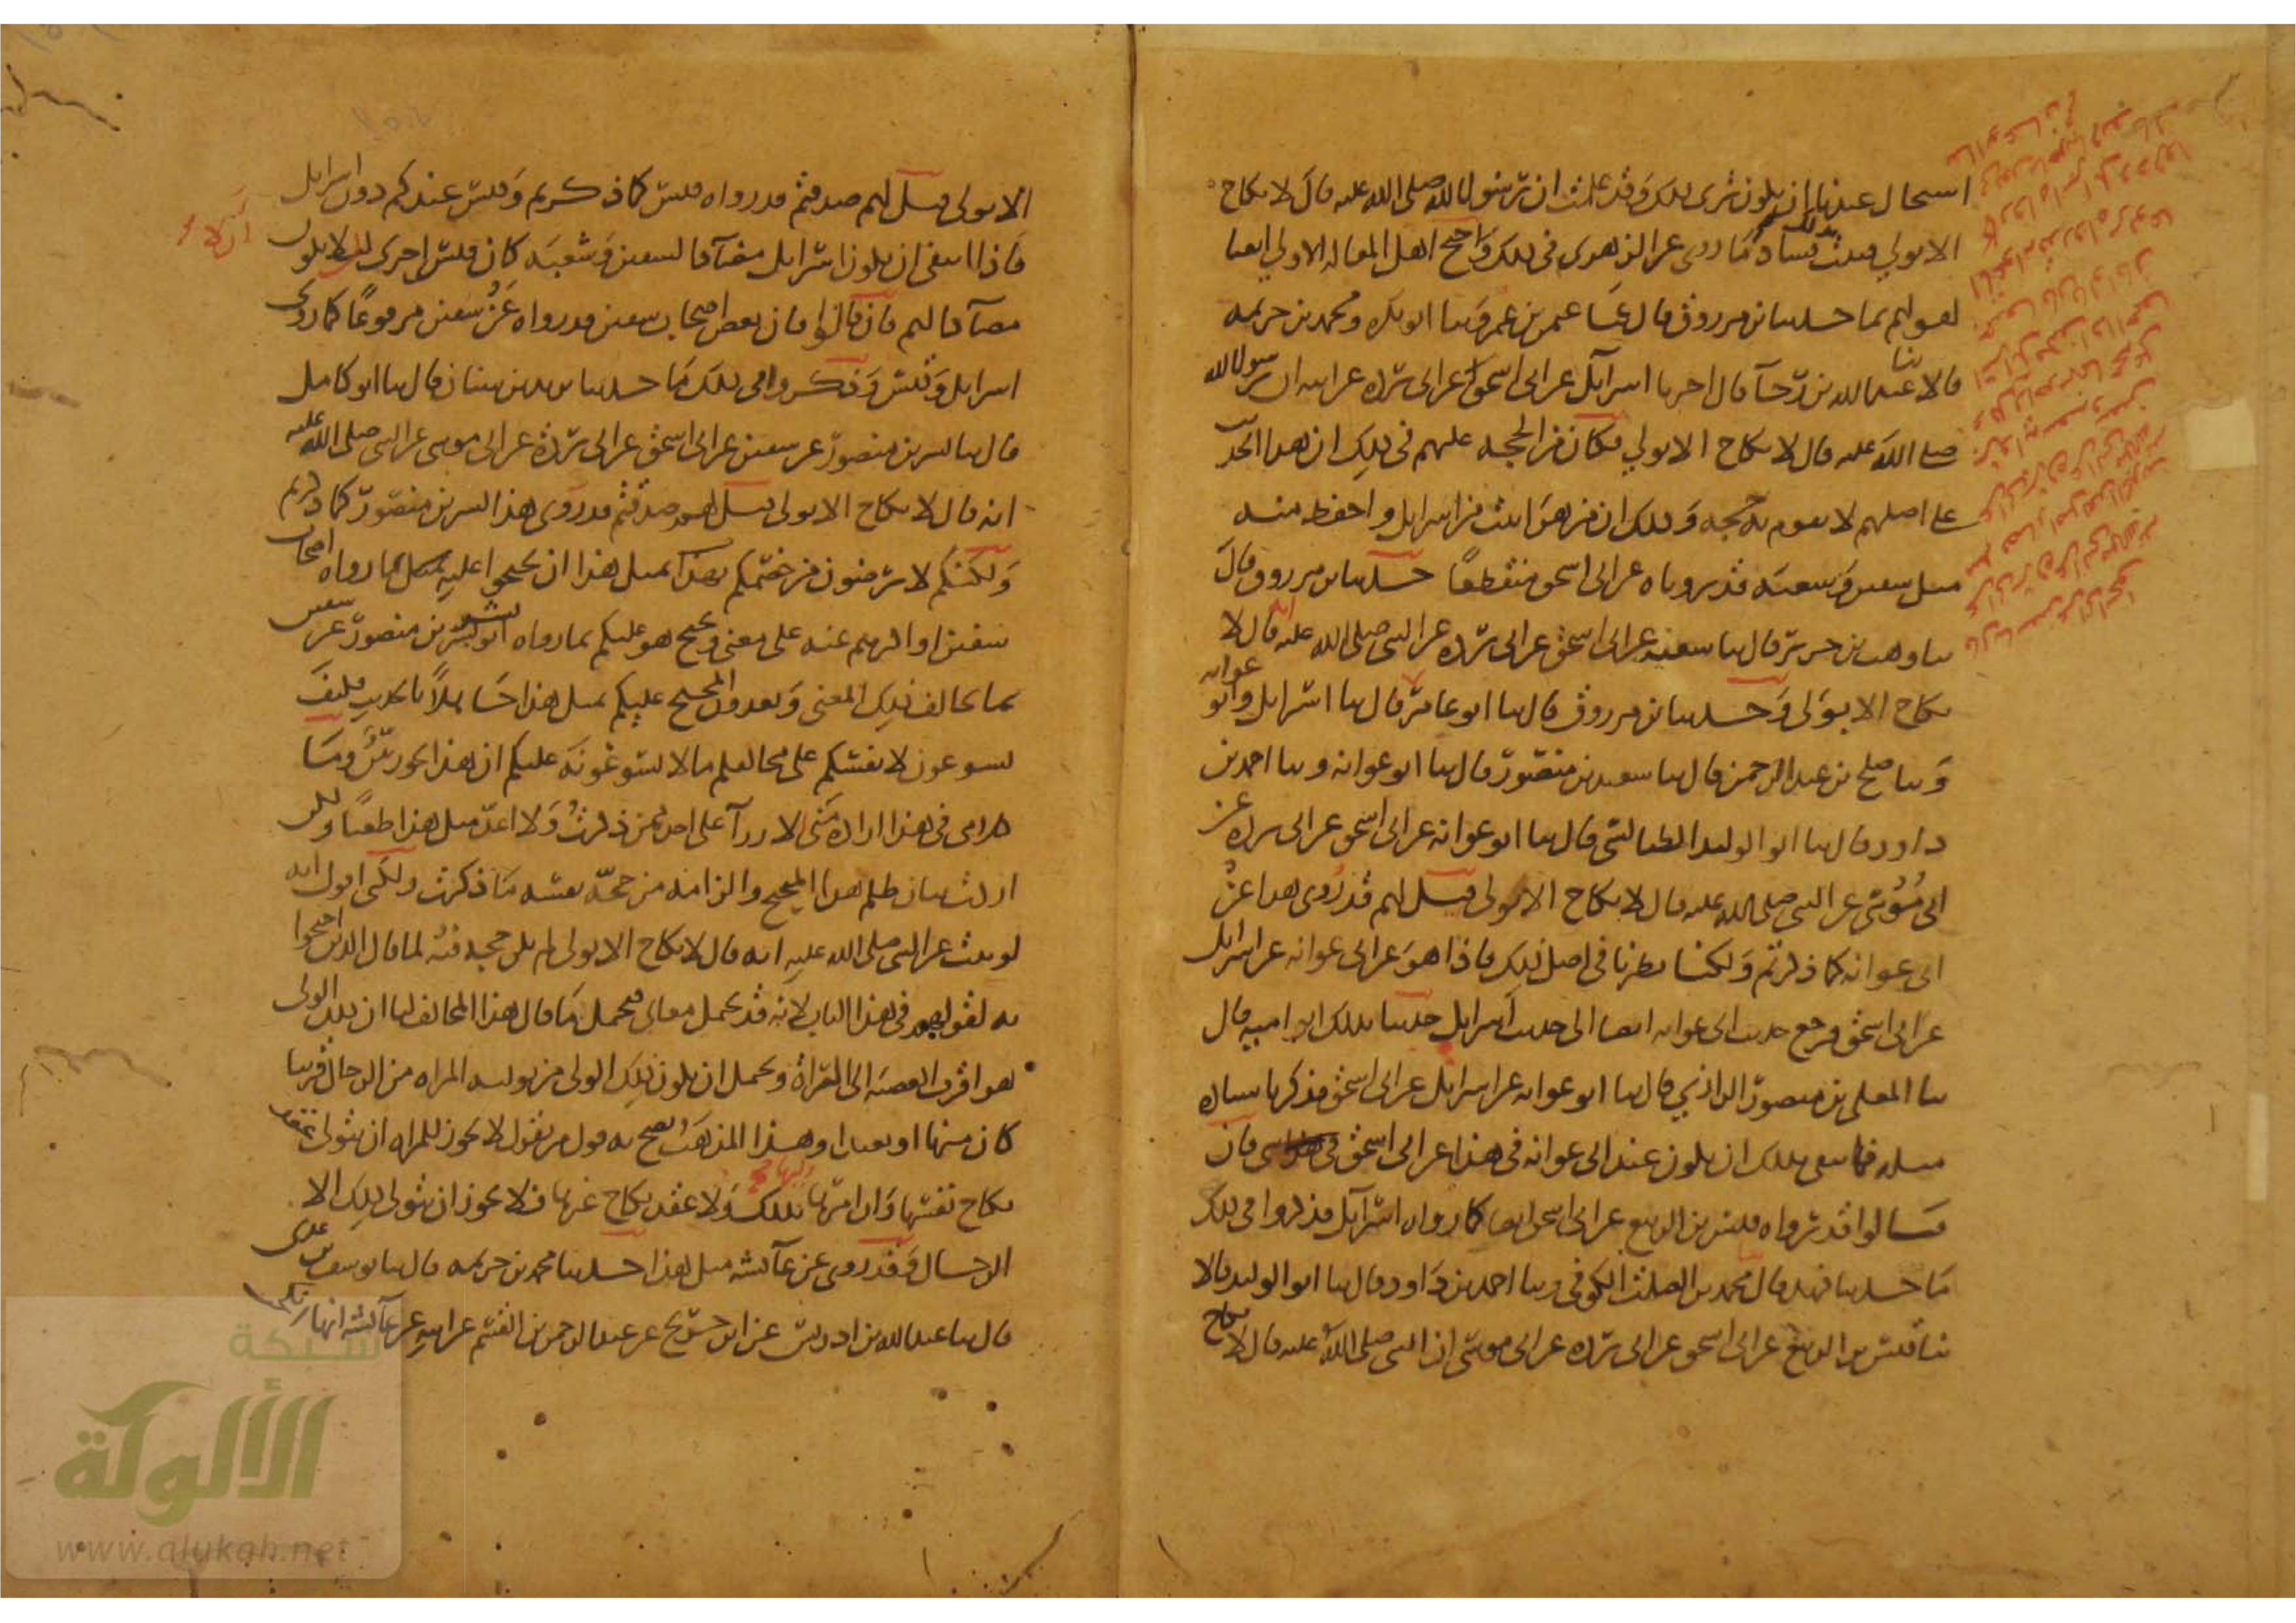 استحال عندنا ان يكون ترى ذلك وقد علمت ان رسول الله صلى الله عليه قال لا نكاح
الا بولي فثبت بذلك فساد ما روى عن الزهري في ذلك واحتج اهل المقالة الاولى ايضا
لقولهم بما حدثنا ابن مرزوق قال ثنا عثمن بن عمر وثنا ابو بكره ومحمد بن خزيمه
قالا ثنا عبد الله بن رجآ قال اخبرنا اسرآيل عن ابي اسحق عن ابي برده عن ابيه ان رسول الله
صلى الله عليه قال لا نكاح الا بولي فكان من الحجه عليهم في ذلك ان هذا الحديث
على اصلهم لا تقوم به حجه وذلك ان من هو اثبت من اسرايل واحفظ منه
مثل سفين وشعبه قد رواه عن ابي اسحق منقطعا حدثنا ابن مرزوق قال
ثنا وهب بن جرير قال ثنا شعبه عن ابي اسحق عن ابي برده عن النبي صلى الله عليه انه قال لا
نكاح الا بولي وحدثنا ابن مرزوق قال ثنا ابو عامر قال ثنا اسرايل وابو عوانه
وثنا صلح بن عبد الرحمن قال ثنا سعيد بن منصور قال ثنا ابو عوانه وثنا احمد بن
داود قال ثنا ابو الوليد الطيالسي قال ثنا ابو عوانه عن ابي اسحق عن ابي برده عن
ابي موسى عن النبي صلى الله عليه قال لا نكاح الا بولي قيل لهم قد روى هذا عن
ابي عوانه كما ذكرتم ولكنا نظرنا في اصل ذلك فاذا هو عن ابي عوانه عن اسرايل
عن ابي اسحق فرجع حديث ابي عوانه ايضا الى حديث اسرايل حدثنا بذلك ابو اميه قال
ثنا المعلى بن منصور الرازي قال ثنا ابو عوانه عن اسرايل عن ابي اسحق فذكر باسناده
مثله فانتفى بذلك ان يكون عند ابي عوانه في هذا عن ابي اسحق فان
قالوا قد رواه قيس بن الربيع عن ابي اسحق ايضا كما رواه اسرآيل فذكروا في ذلك
ما حدثنا فهد قال محمد بن الصلت الكوفي وثنا احمد بن داود قال ثنا ابو الوليد قالا
ثنا قيس بن الربيع عن ابي اسحق عن ابي برده عن ابي موسى ان النبي صلى الله عليه قال لا نكاح
الا بولي قيل لهم صدقتم قد رواه قيس كما ذكرتم وقيس عندكم دون اسرايل
فاذا انتفى ان يكون اسرايل مضآدا لسفين وشعبه كان قيس احرى ان لا يكون
مضآدا لهم فان قالوا فان بعض اصحاب سفين قد رواه عن سفين مرفوعا كما روى
اسرايل وقيس وذكروا في ذلك ما حدثنا يزيد بن سنان قال ثنا ابو كامل
قال ثنا بشر بن منصور عن سفين عن ابي اسحق عن ابي برده عن ابي موسى عن النبي صلى الله عليه
انه قال لا نكاح الا بولي قيل لهم صدقتم قد روى هذا بشر بن منصور كما ذكرتم
ولكنكم لا ترضون من خصمكم بمثل هذا ان يحتجوا عليكم بما رواه اصحاب
سفين او اكثرهم عنه على معنى ويحتج هو عليكم بما رواه بشر بن منصور عن سفين
بما يخالف ذلك المعنى وتعدون المحتج عليكم بمثل هذا جاهلا بالحديث فكيف
تسوغون لانفسكم على مخالفكم ما لا تسوغونه عليكم ان هذا لجور بين وما
كلامي في هذا ارادة مني الازرآ على احد ممن ذكرت ولا اعد مثل هذا طعنا ولكن
اردت بيان ظلم هذا المحتج والزامه من حجة نفسه ما ذكرت ولكني اقول انه
لو ثبت عن النبي صلى الله عليه انه قال لا نكاح الا بولي لم يكن حجه فيه لما قال الذين احتجوا
به لقولهم في هذا الباب لانه قد يحتمل معاني فيحتمل ما قال هذا المخالف لنا ان ذلك الولي
هو اقرب العصبه الى المرأة ويحتمل ان يكون ذلك الولي من توليه المراه من الرجال قريبا
كان منها او بعيدا وهذا المذهب يصح به قول من يقول لا يجوز للمراه ان تتولى عقد
نكاح نفسها وان امرها وليها بذلك ولا عقد نكاح غيرها فلا يجوز ان يتولى ذلك الا
الرجال وقد روى عن عآئشه مثل هذا حدثنا محمد بن خزيمه قال ثنا يوسف بن عدى
قال ثنا عبد الله بن ادريس عن ابن جريج عن عبد الرحمن بن القسم عن ابيه عن عآئشه انها
شبكة
الألوكة
www.alukah.net